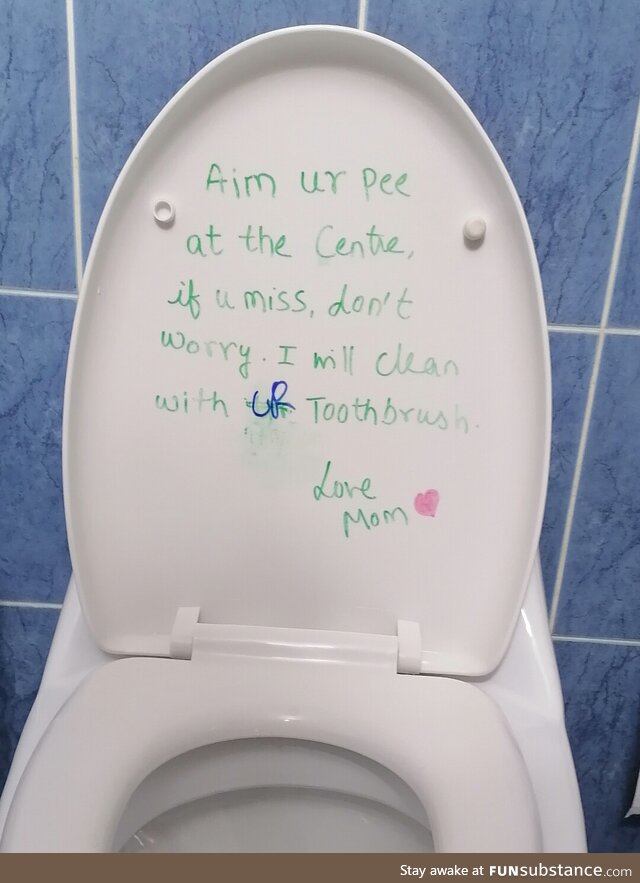 Aim ur pee
at the Centre,
if u miss, don't
worry. I will clean
with ur Toothbrush.
Love
Mom
Stay awake at FUNsubstance.com